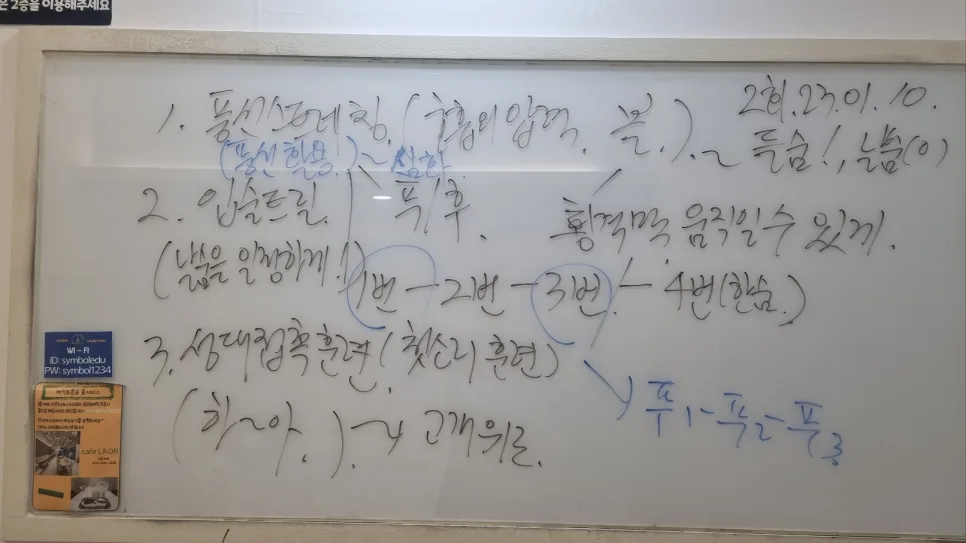 은 2층을 이용해주세요
2회.23.01.10.
1. 풍선스트레칭. (호흡의 압력, 볼.).~ 들숨!, 날숨(이)
(풍선 활용.)~ 심화.
2. 입술트릴. 푸/후.
횡격막 움직일 수 있게.
(날숨은 일정하게!)
1번-2번-3번-4번(한숨.)
3. 성대접촉훈련(첫소리 훈련)
푸1-푸2-푸3
(하~아.).~ 고개위로.
WI-FI
ID: symboledu
PW: symbol1234
cafe LAON